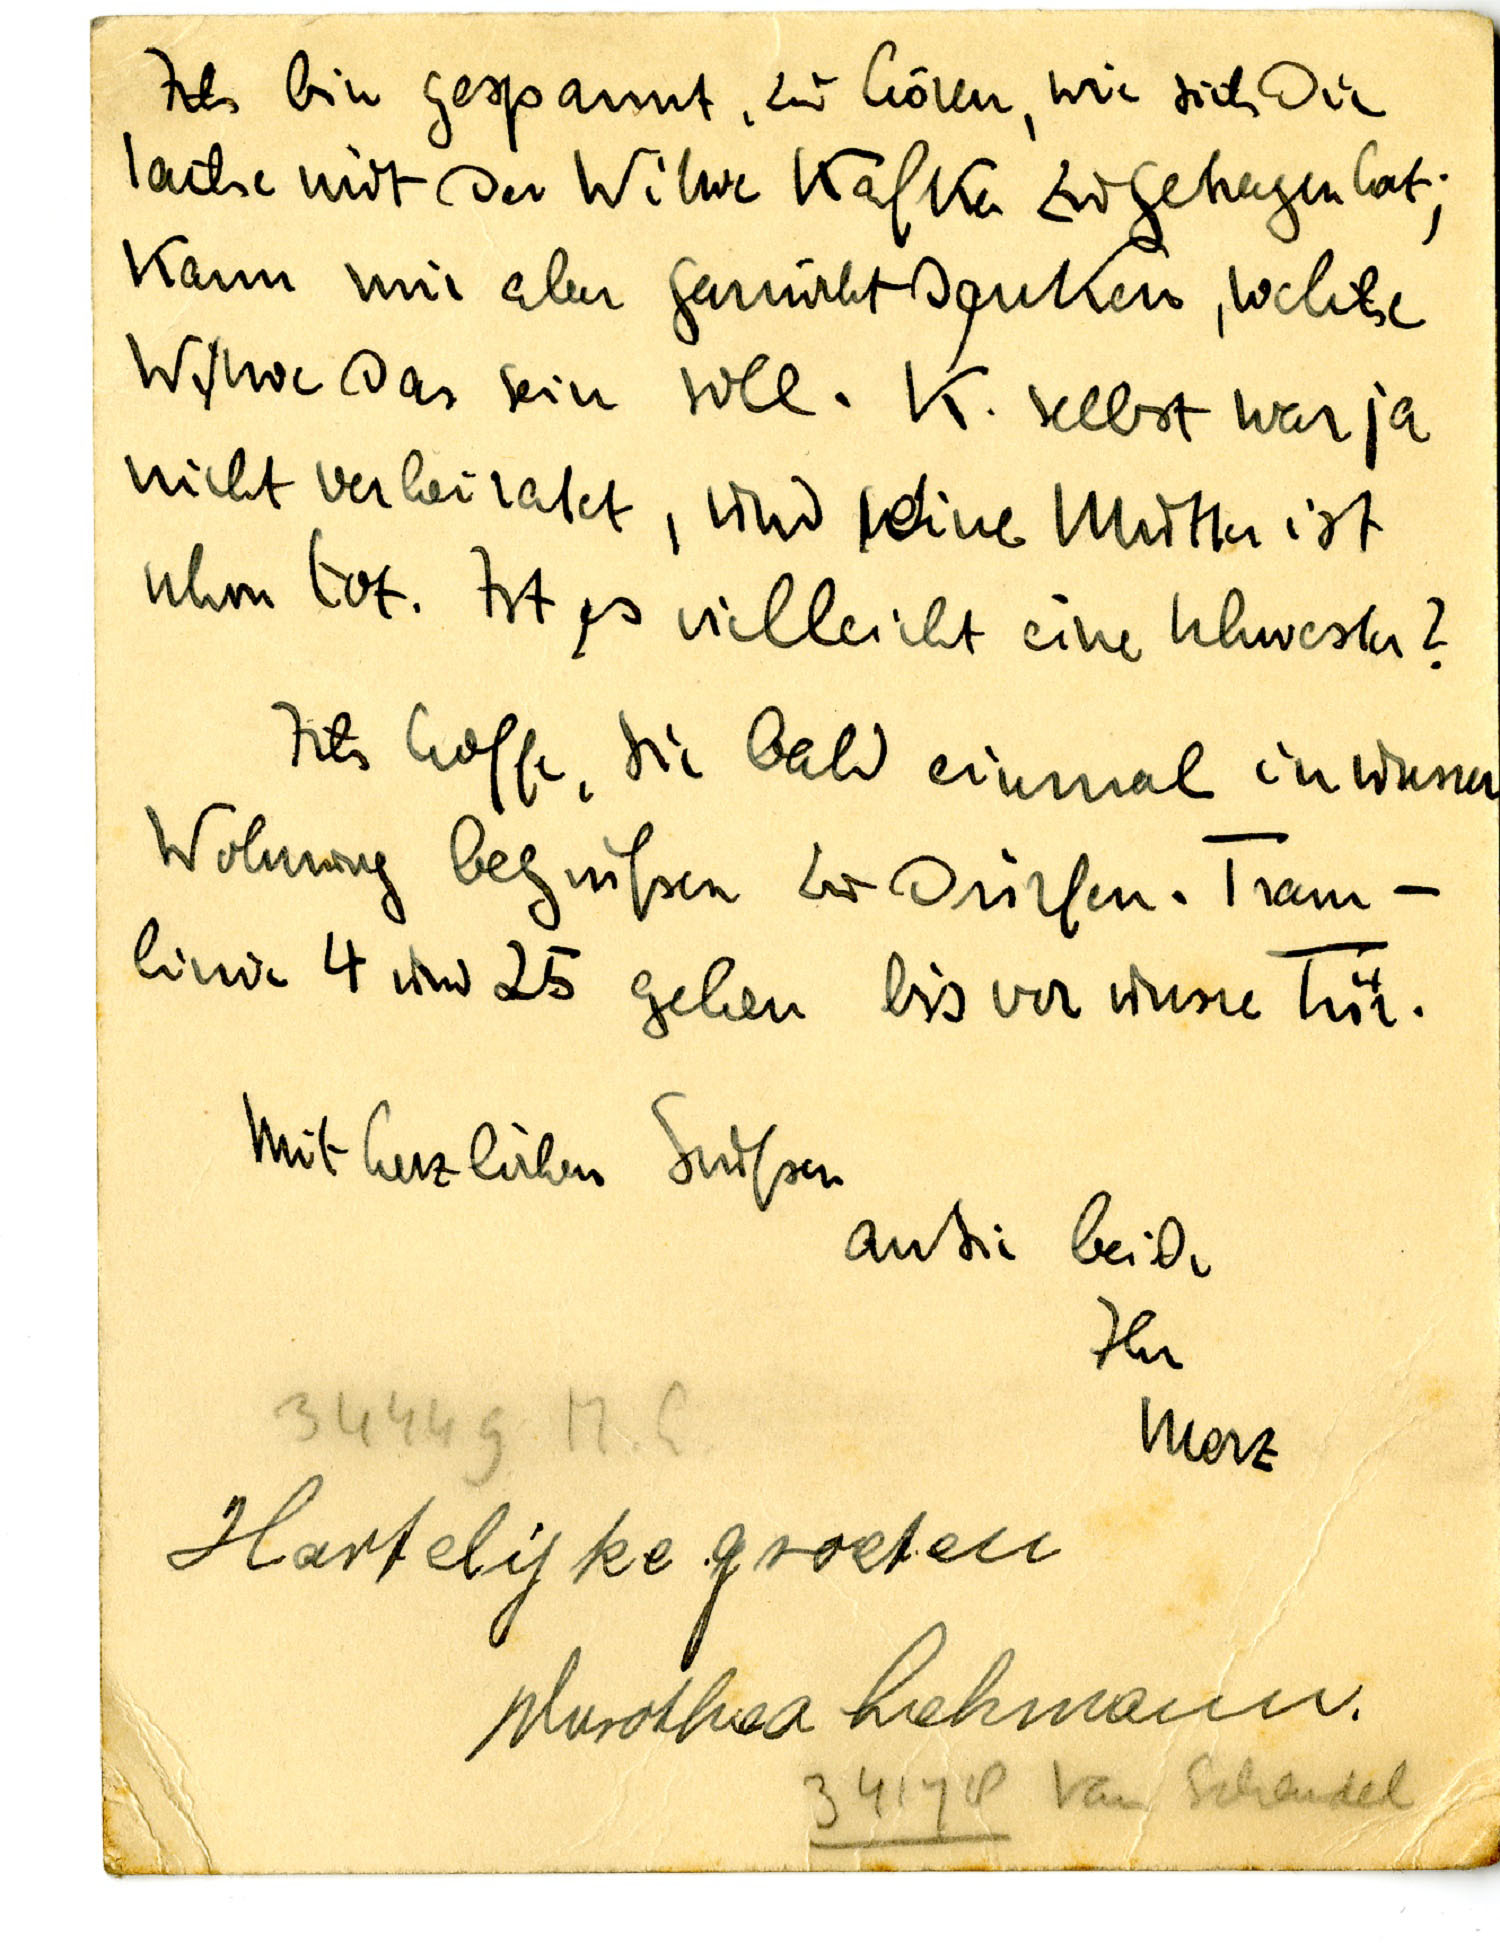 Ich bin gespannt, zu hören, wie sich die
Sache mit der Witwe Kafka zugetragen hat;
kann mir aber garnicht denken, welche
Witwe das sein soll. K. selbst war ja
nicht verheiratet, und seine Mutter ist
schon tot. Ist es vielleicht eine Schwester?
Ich hoffe, Sie bald einmal in unserer
Wohnung begrüßen zu dürfen. Tram-
linie 4 und 25 gehen bis vor unsre Tür.
Mit herzlichen Grüßen
an Sie beide
Ihr
Merz
34449 M.
Hartelijke groeten
Dorothea Lehmann.
34178 van Schendel